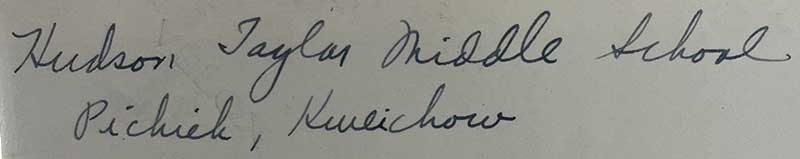 Hudson Taylor Middle School
Pichieh, Kweichow